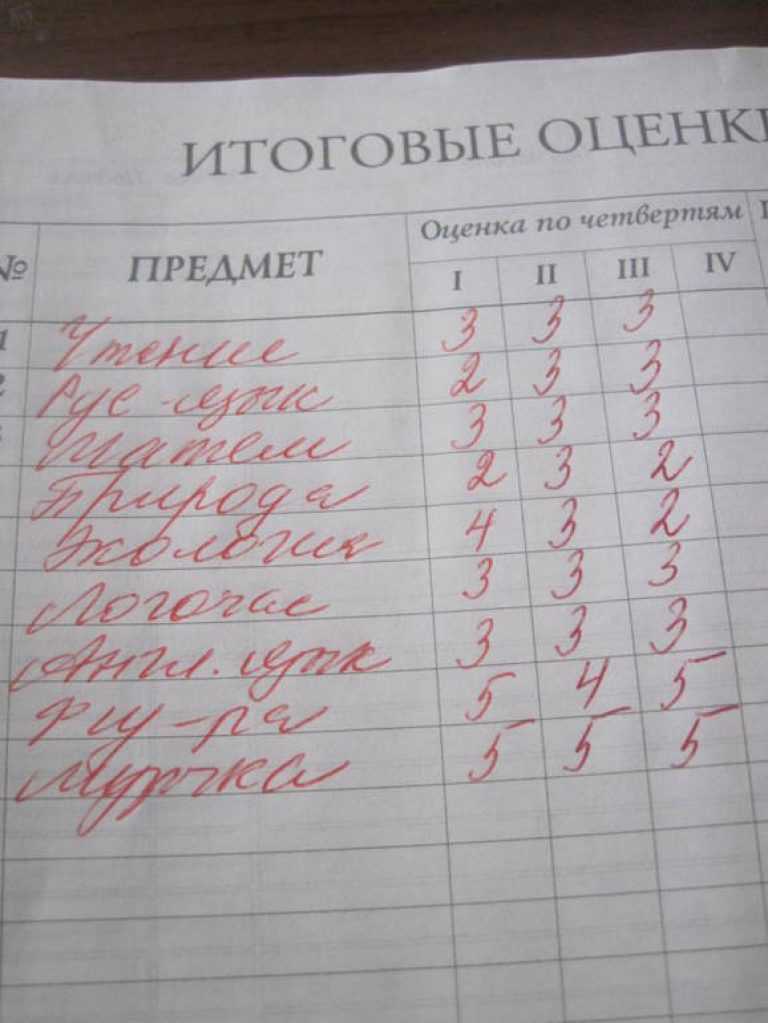 ИТОГОВЫЕ ОЦЕНКИ
№ ПРЕДМЕТ Оценка по четвертям
I II III IV
1 Чтение 3 3 3
2 Рус-язык 2 3 3
Матем 3 3 3
Природа 2 3 2
Экология 4 3 2
Логочас 3 3 3
Англ. язык 3 3 3
Физ-ра 5 4 5
Музыка 5 5 5